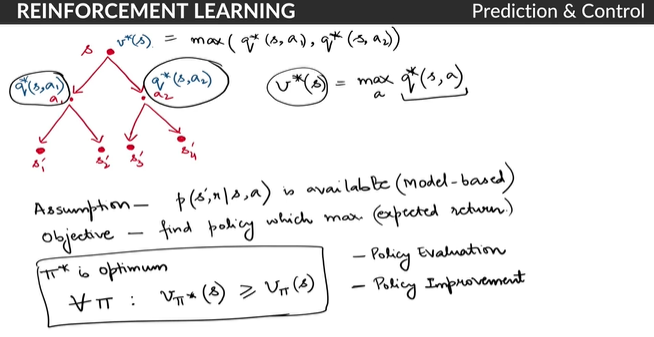 REINFORCEMENT LEARNING
Prediction & Control
s v*(s) = max( q*(s,a₁), q*(s,a₂))
q*(s,a₁) q*(s,a₂) v*(s) = max q*(s,a)
a₁ a₂ a
s'₁ s'₂ s'₃ s'₄
Assumption — p(s',r|s,a) is available (model-based)
Objective — find policy which max (expected return)
π* is optimum
∀ π : v_π*(s) ⩾ v_π(s)
– Policy Evaluation
– Policy Improvement